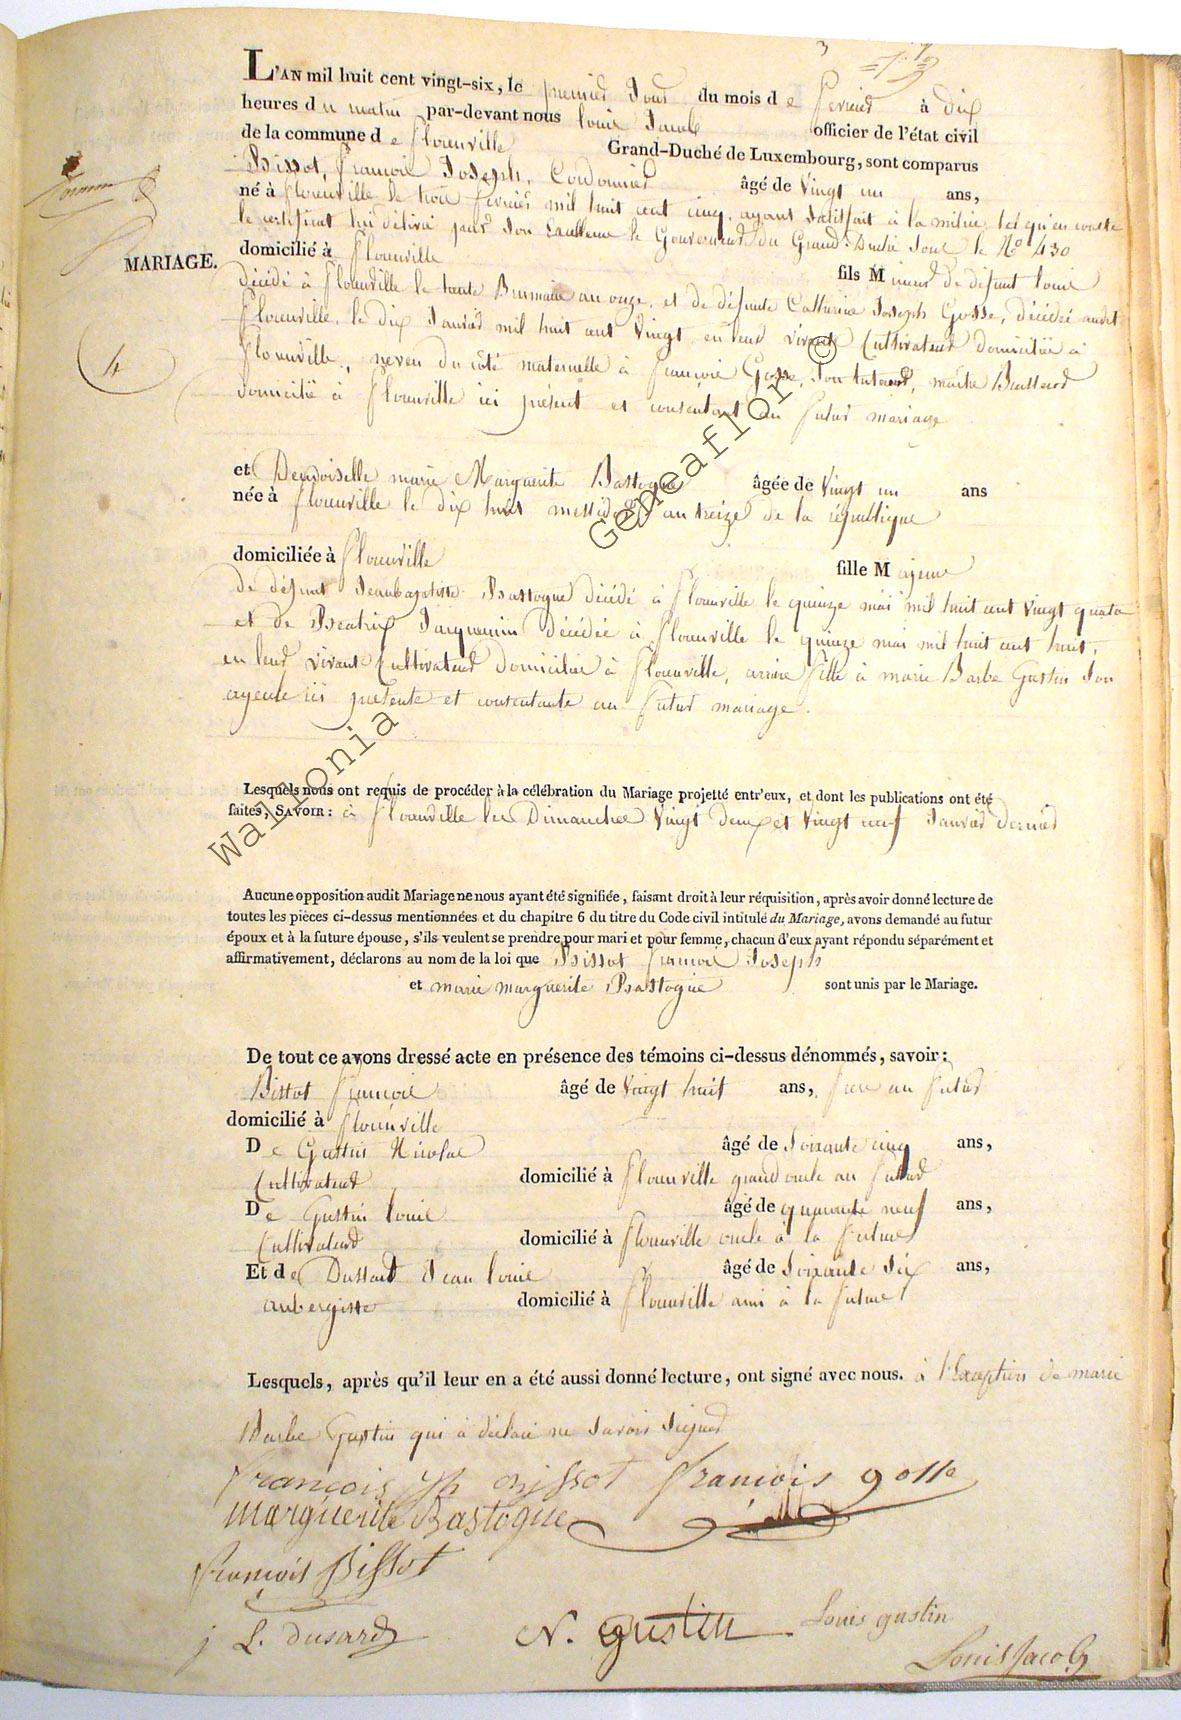 3
L'AN mil huit cent vingt-six, le premier Jour du mois de fevrier à dix
heures du matin par-devant nous Louis Jacob officier de l'état civil
de la commune de florenville Grand-Duché de Luxembourg, sont comparus
Bissot, françois Joseph, Cordonnier âgé de vingt un ans,
né à florenville le trois fevrier mil huit cent cinq, ayant satisfait à la milice, tel qu'en conste
le certificat lui délivré par son Excellence le Gouverneur du Grand-Duché sous le N° 430
domicilié à florenville fils Mineur de défunt Louis
MARIAGE.
décédé à florenville le trente Brumaire an onze, et de défunte Catherine Joseph Gosse, décédée audit
florenville, le dix Janvier mil huit cent vingt, en leur vivant Cultivateurs domiciliés à
florenville, neveu du côté maternelle à françois Gosse, son tuteur, maitre Brasseur
4
domicilié à florenville ici présent et consentant au futur mariage
et Demoiselle marie Marguerite Bastogne âgée de vingt un ans
née à florenville le dix huit messidor an treize de la république
domiciliée à florenville fille Majeure
de défunt Jeanbaptiste Bastogne décédé à florenville le quinze mai mil huit cent vingt quatre
et de Beatrix Jacquemin décédée à florenville le quinze mai mil huit cent huit,
en leur vivant Cultivateurs domiciliés à florenville, arriere fille à marie Barbe Gustin son
ayeule ici présente et consentante au futur mariage.
Lesquels nous ont requis de procéder à la célébration du Mariage projetté entr'eux, et dont les publications ont été
faites, SAVOIR: à florenville les Dimanches vingt deux et vingt neuf Janvier dernier
Aucune opposition audit Mariage ne nous ayant été signifiée, faisant droit à leur réquisition, après avoir donné lecture de
toutes les pièces ci-dessus mentionnées et du chapitre 6 du titre du Code civil intitulé du Mariage, avons demandé au futur
époux et à la future épouse, s'ils veulent se prendre pour mari et pour femme, chacun d'eux ayant répondu séparément et
affirmativement, déclarons au nom de la loi que Bissot françois Joseph
et marie marguerite Bastogne sont unis par le Mariage.
De tout ce avons dressé acte en présence des témoins ci-dessus dénommés, savoir:
Bissot françois âgé de vingt huit ans, frere au futur
domicilié à florenville
De Gustin Nicolas âgé de soixante cinq ans,
Cultivateur domicilié à florenville grand oncle au futur
De Gustin Louis âgé de quarante neuf ans,
Cultivateur domicilié à florenville oncle à la future
Et de Dussart Jean Louis âgé de soixante six ans,
aubergiste domicilié à florenville ami à la future
Lesquels, après qu'il leur en a été aussi donné lecture, ont signé avec nous. à l'Exception de marie
Barbe Gustin qui à déclaré ne savoir signer
françois Jph Bissot françois gosse
marguerite Bastogne
françois Bissot
j L. dusard N. gustin Louis gustin
Louis Jacob
Wallonia Geneaflor ©